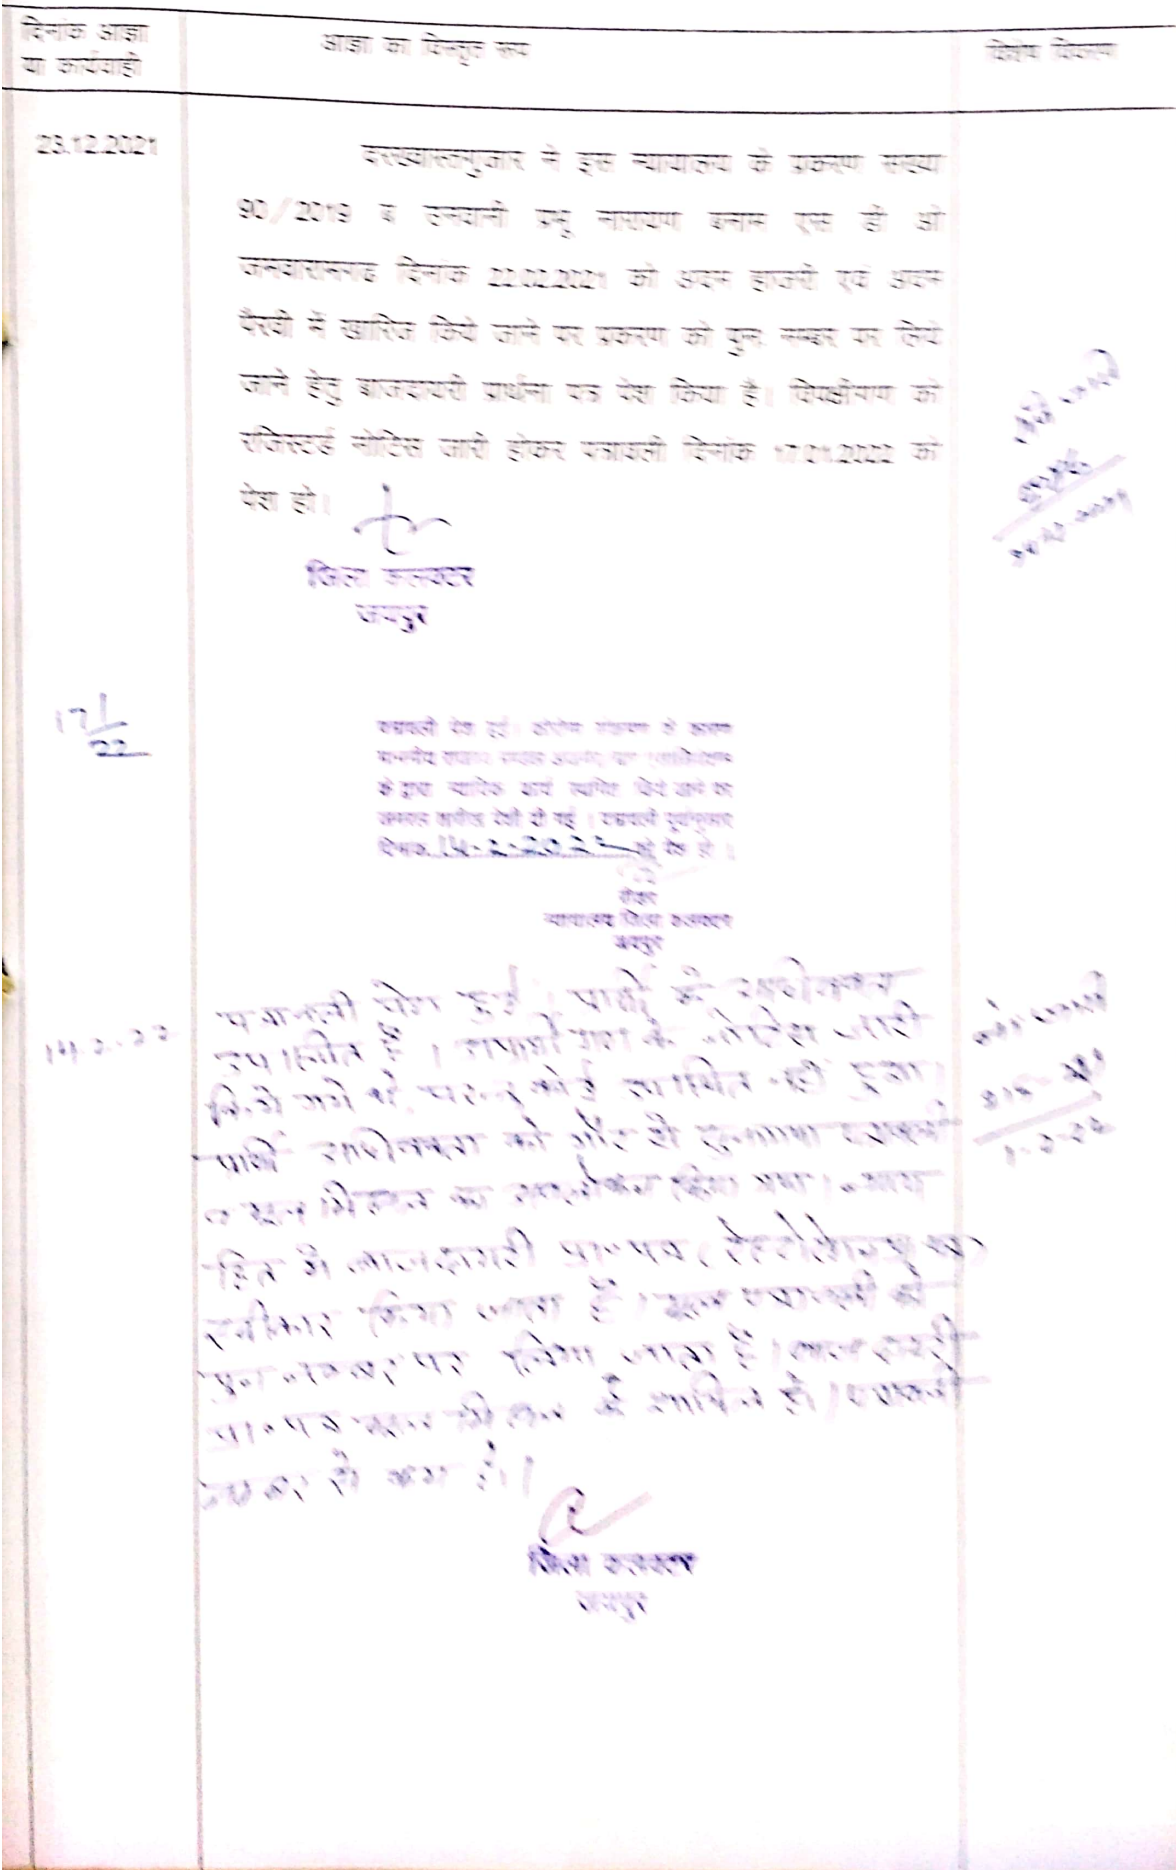 दिनांक आज्ञा
या कार्यवाही
आज्ञा का विस्तृत रूप
विशेष विवरण
23.12.2021
दरख्वास्तगुजार ने इस न्यायालय के प्रकरण संख्या
90/2019 ब उनवानी प्रभू नारायण बनाम एस डी ओ
जमवारामगढ दिनांक 22.02.2021 को अदम हाजरी एवं अदम
पैरवी में खारिज किये जाने पर प्रकरण को पुनः नम्बर पर लिये
जाने हेतु बाजदायरी प्रार्थना पत्र पेश किया है। विपक्षीगण को
रजिस्टर्ड नोटिस जारी होकर पत्रावली दिनांक 17.01.2022 को
पेश हो।
जिला कलक्टर
जयपुर
17/1/22
पत्रावली पेश हुई। कोरोना संक्रमण के कारण
माननीय राजस्व मण्डल अजमेर
के द्वारा न्यायिक कार्य स्थगित किये जाने का
तारीख पेशी दी गई। पत्रावली पूर्वानुसार
दिनांक 14-2-2022 को पेश हो।
रीडर
न्यायालय जिला कलक्टर
जयपुर
14.2.22
पत्रावली पेश हुई। प्रार्थी के अधिवक्ता
उपस्थित है। के नोटिस जारी
किये गये थे, परन्तु कोई उपस्थित नहीं हुआ।
प्रार्थी अधिवक्ता को गौर से सुना गया पत्रावली
का अवलोकन किया गया। न्याय
हित में बाजदायरी प्रा०पत्र
स्वीकार किया जाता है। मूल पत्रावली को
पुनः नम्बर पर लिया जाता है। बाजदायरी
प्रा०पत्र मूल मिसल में शामिल हो। पत्रावली
नम्बर से कम हो।
जिला कलक्टर
जयपुर